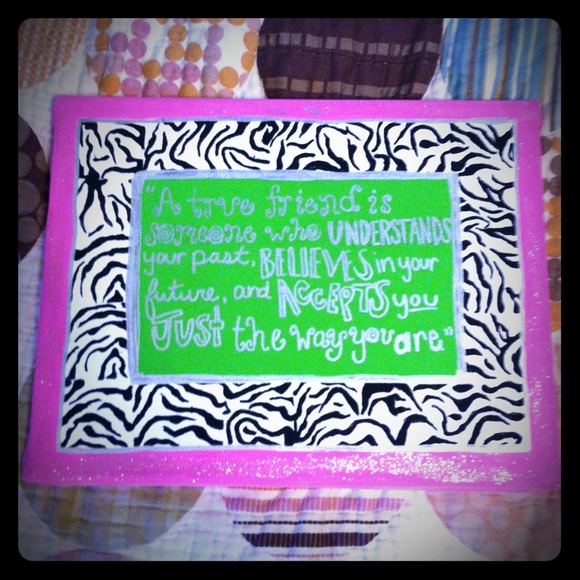 "A true friend is
someone who UNDERSTANDS
your past, BELIEVES in your
future, and ACCEPTS you
Just the way you are"